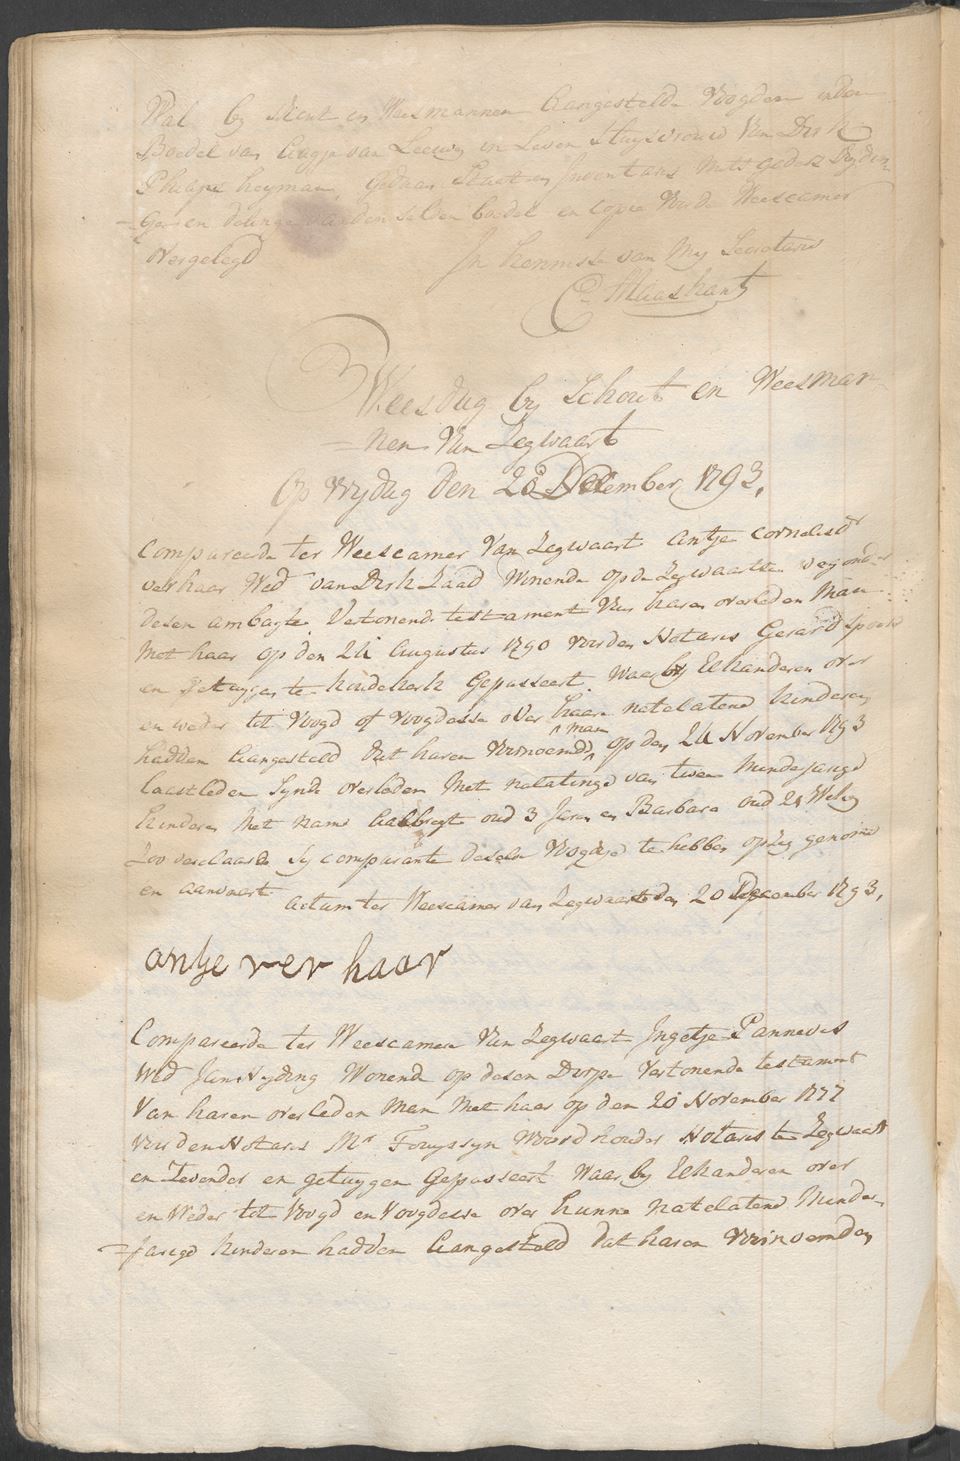 Wal by Schout en Weesmannen Aangestelde Voogden inden
Boedel van Aagje van Leeuwen in Leven Huysvrouw van Dirk
Philips Heyman, gedaan Staat en Inventaris Mitsgaders
en copie Voor de Weescamer
Overgelegd
In kennisse van Mij Secretaris
C. Maaskant
Weesdag by Schout en Weesman-
=nen Van Zegwaart
Op Vrydag Den 20 December 1793,
Compareerde ter Weescamer Van Zegwaart Antje Cornelisdr
ver haar Wed van Dirk Zaad Wonende op de Zegwaartse weg onder
desen ambagte Vertonende testament van haren overleden Man
Met haar op den 24 Augustus 1790 voor den Notaris Gerard
en getuygen te Koudekerk Gepasseert Waarby Elkanderen over
en weder tot Voogd of Voogdesse over haare natelatene kinderen
hadden Aangesteld dat haren Voornoemde man op den 24 November 1793
laastleden Synde overleden Met nalatinge van twee Minderjarige
kinderen Met name oud 3 Jaren en Barbara oud 21 Weken
Zoo verclaarde Sij comparante deselve Voogdije te hebben op zig genomen
en aanvaart Actum ter Weescamer van Zegwaart den 20 December 1793,
antje ver haar
Compareerde ter Weescamer Van Zegwaart Ingetje Pannevis
Wed Jan Nyding Wonend op desen Dorpe Vertonende testament
Van haren overleden Man Met haar op den 20 November 1777
Voor den Notaris Mr Fouyssyn Woordhouder Notaris te Zegwaart
en Zevender en getuygen Gepasseert Waar by Elkanderen over
en Weder tot Voogd en Voogdesse over hunne natelatene Minder-
=Jarige kinderen hadden Aangesteld dat haren Voornoemden